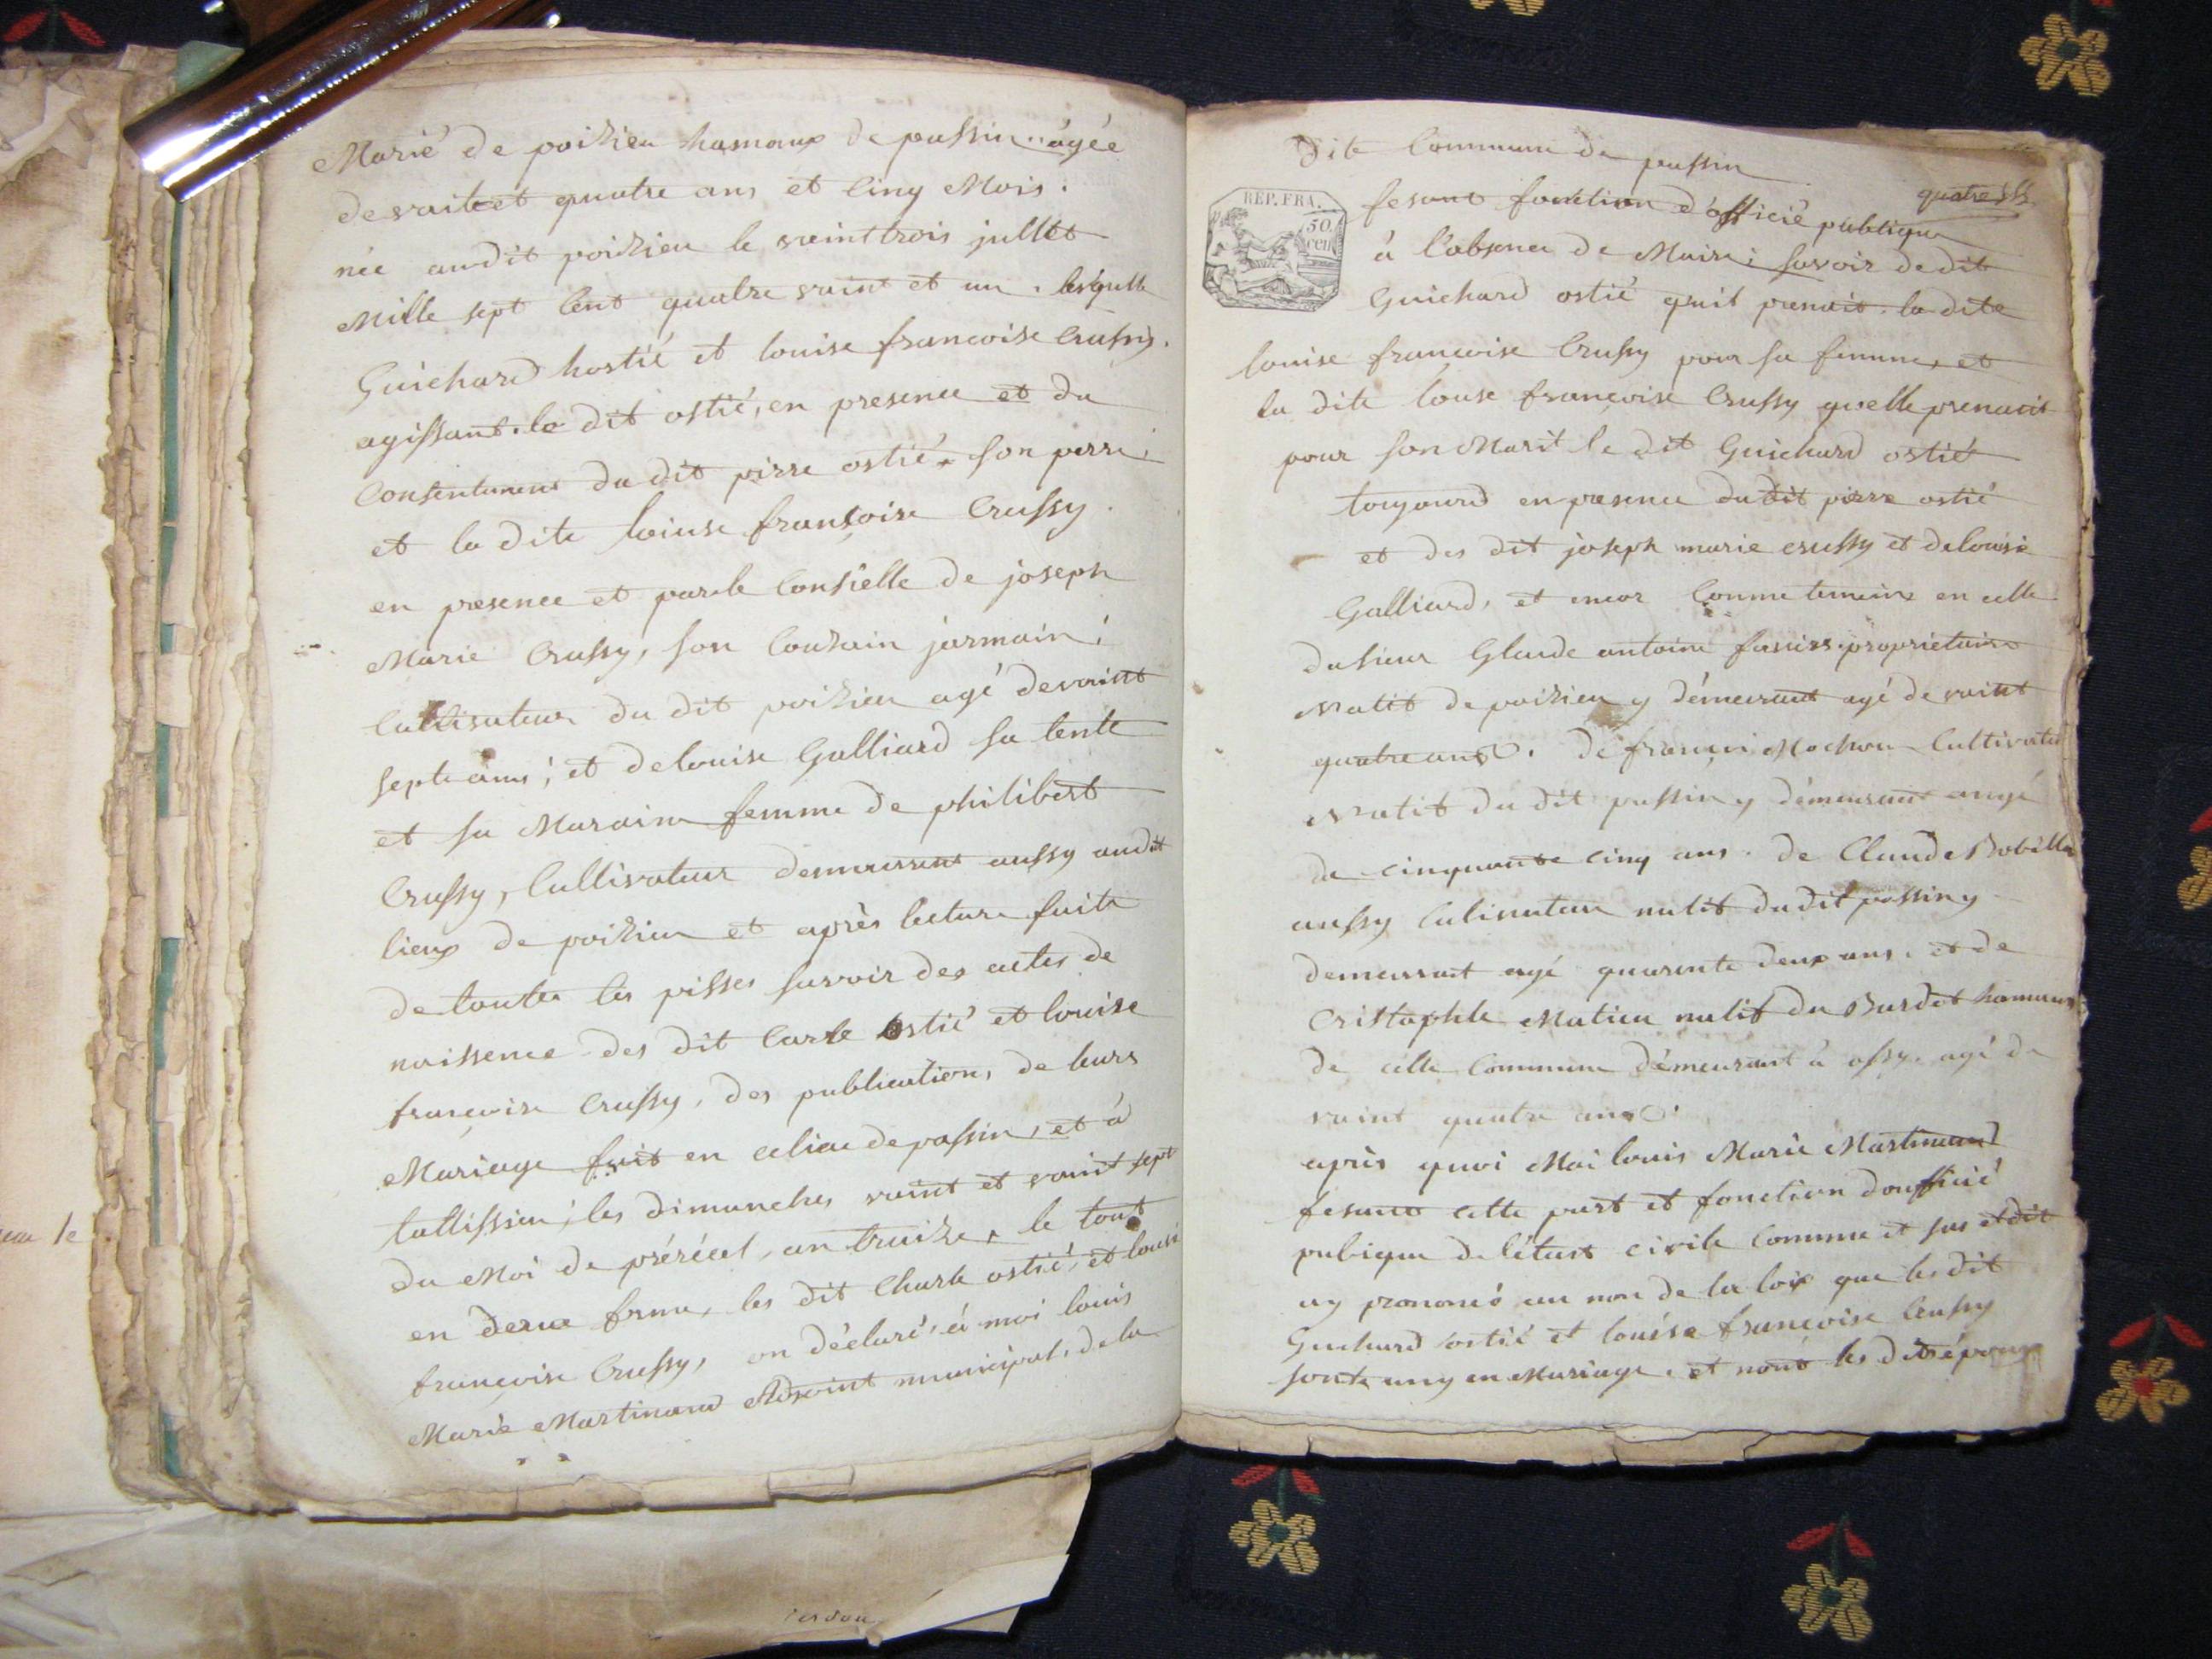 Marié de poisieu hamaux de passin âgée
de vaite et quatre ans et Cinq Mois.
née audit poisieu le vaint trois jullet
Mille sept Cent quatre vaint et un. lesquelle
Guichard hostié et louise francoise Crussy.
agissant. le dit ostié, en presence et du
Consentement du dit pirre ostié son perre,
et la dite loiuse françoise Crussy.
en presence et par le Consielle de joseph
Marie Crussy, son Cousain jarmain;
Cultisateur du dit poisieu agé de vaint
septe ans; et de louise Galliard sa tente
et sa Maraine femme de philibert
Crussy, Cultivateur demeurent aussy audit
lieux de poisieu et après lecture faite
de toutes les pisses savoir des actes de
naissence des dit Carle ostié et louise
francoise Crussy, des publications de leurs
Mariage fait en celieu de passin, et à
tallissieu; les dimanches vaint et vaint sept
du Moi de préréeal, an traize, le tout
en derue forme, les dit Charle ostié, et louise
françoise Crussy, on déclaré, à moi louis
Marie Martinand Adjoint municipal, de la
dite Commune de passin
quatre
REP. FRA.
50.
cen
fesant fonction d'officié publique
à l'absence de Maire; savoir de dit
Guichard ostié quil prenait. la dite
louise francoise Crussy pour sa femme, et
la dite louse françoise Crussy quelle prenait
pour son Marit le dit Guichard ostié
toujourd en presence du dit pierre ostié
et des dit joseph marie crussy et de louise
Galliard, et encor Comme temeins en celle
du sieur Glaude antoine propriétaire
Natif de poisieu y démeurant agé de vaint
quatre ans. de francoi Mochon Cultivateur
Natif du dit passin y démeurant angé
de cinquante cinq ans. de Claude Bobillon
aussy Culivateur natif du dit passin y
demeurant agé quarente deux ans. et de
Cristophle Matieu natif du Burdet hamaux
de cette Commune démeurant à ossy. agé de
vaint quatre ans.
après quoi Moi louis Marie Martinand
fesant cette part et fonction douffisié
publique de létast civile Comme et sus et dit
ay prononcé au non de la loix que les dit
Guichard ostié et louise francoise Crussy
sont uny en Mariage. et nont les dit époux